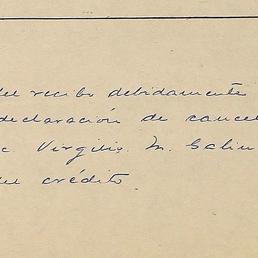 del recibo debidamente
declaración de cancel
Virgilio M. Galin
del crédito